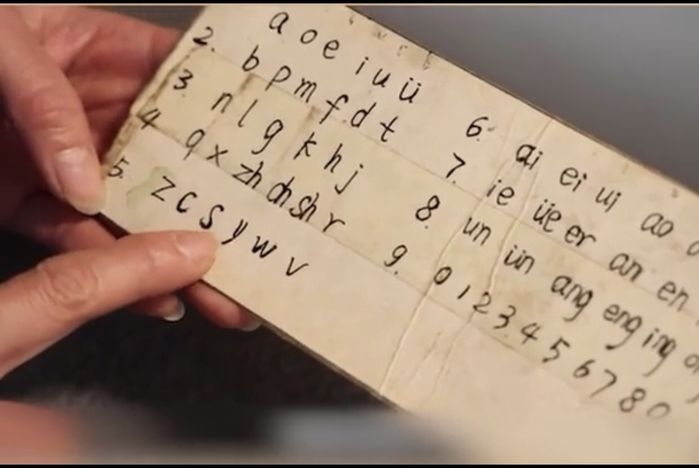 a o e i u ü
2. b p m f d t
3. n l g k h j
4 q x zh ch sh r
5. z c s y w v
6. ai ei ui ao
7. ie üe er an en
8. un ün ang eng ing
9. 0 1 2 3 4 5 6 7 8